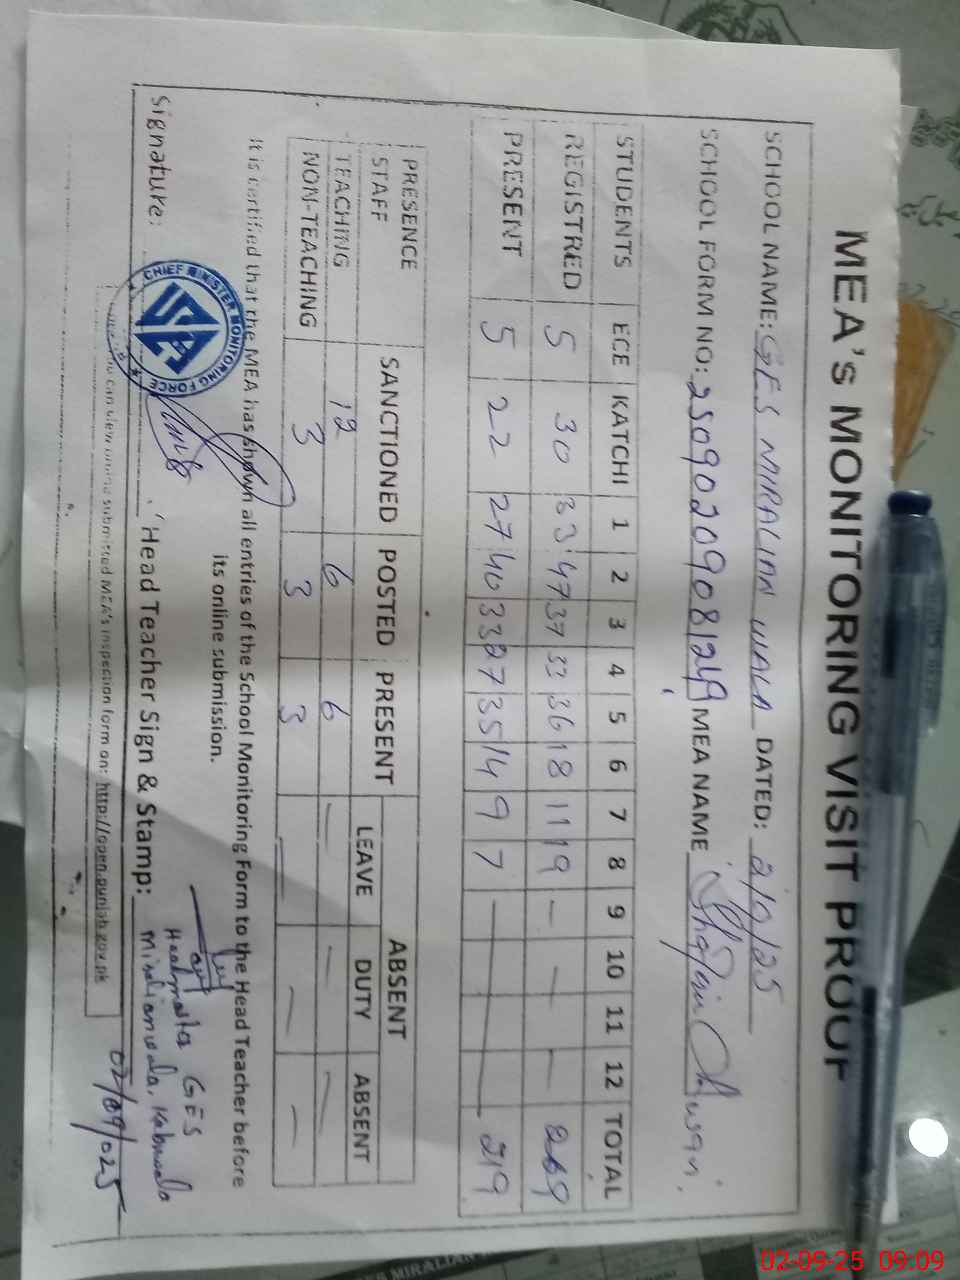 MEA's MONITORING VISIT PROOF
SCHOOL NAME: GES MIRALIAN WALA DATED: 2/9/25
SCHOOL FORM NO: 250902090981249 MEA NAME
STUDENTS ECE KATCHI 1 2 3 4 5 6 7 8 9 10 11 12 TOTAL
REGISTRED 5 30 33 47 37 33 36 18 11 19 - - - 269
PRESENT 5 22 27 40 33 27 35 14 9 7 219
PRESENCE SANCTIONED POSTED PRESENT ABSENT
STAFF LEAVE DUTY ABSENT
TEACHING 12 6 6 - - -
NON-TEACHING 3 3 3 - - -
It is certified that the MEA has shown all entries of the School Monitoring Form to the Head Teacher before
its online submission.
CHIEF MINISTER MONITORING FORCE
Signature: Head Teacher Sign & Stamp:
Headmaster GES
Miralianwala, Kabirwala
02/09/025
You can view online submitted MEA's inspection form on: http://open.punjab.gov.pk
MIRALIAN
02-09-25 09:09